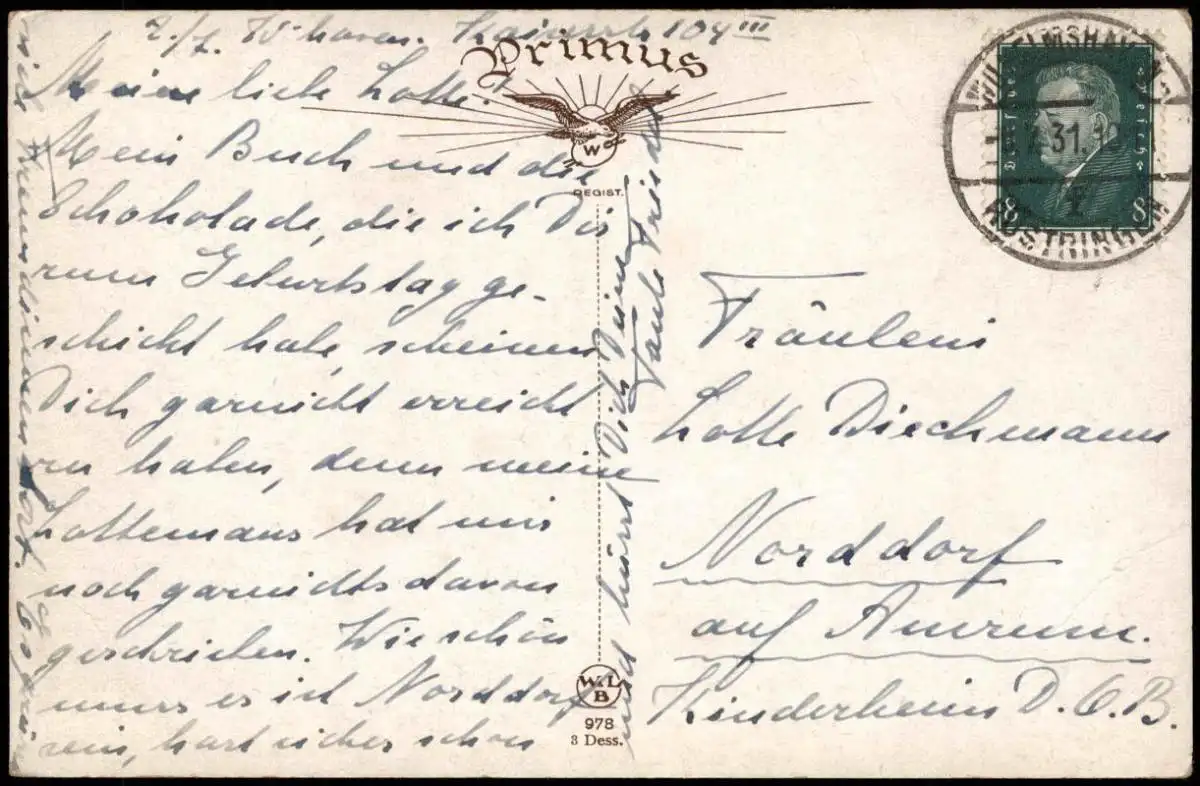 2./7. W'haven. Kaiserstr. 104 III
Primus
Meine liebe Lotte!
Mein Buch und die
Schokolade, die ich Dir
zum Geburtstag ge-
schickt habe, scheinen
Dich garnicht erreicht
zu haben, denn meine
Lottemaus hat mir
noch garnichts davon
geschrieben. Wie schön
muss es in Norddorf
sein, hast sicher schon
viele Freundinnen dort. Es grüßt
und küsst Dich Deine
Tante Frieda
W
REGIST.
W.L.
B
978
3 Dess.
WILHELMSHAVEN
31.
RÜSTRINGEN
Deutsches Reich
8 8
Fräulein
Lotte Dieckmann
Norddorf
auf Amrum.
Kinderheim D.O.B.